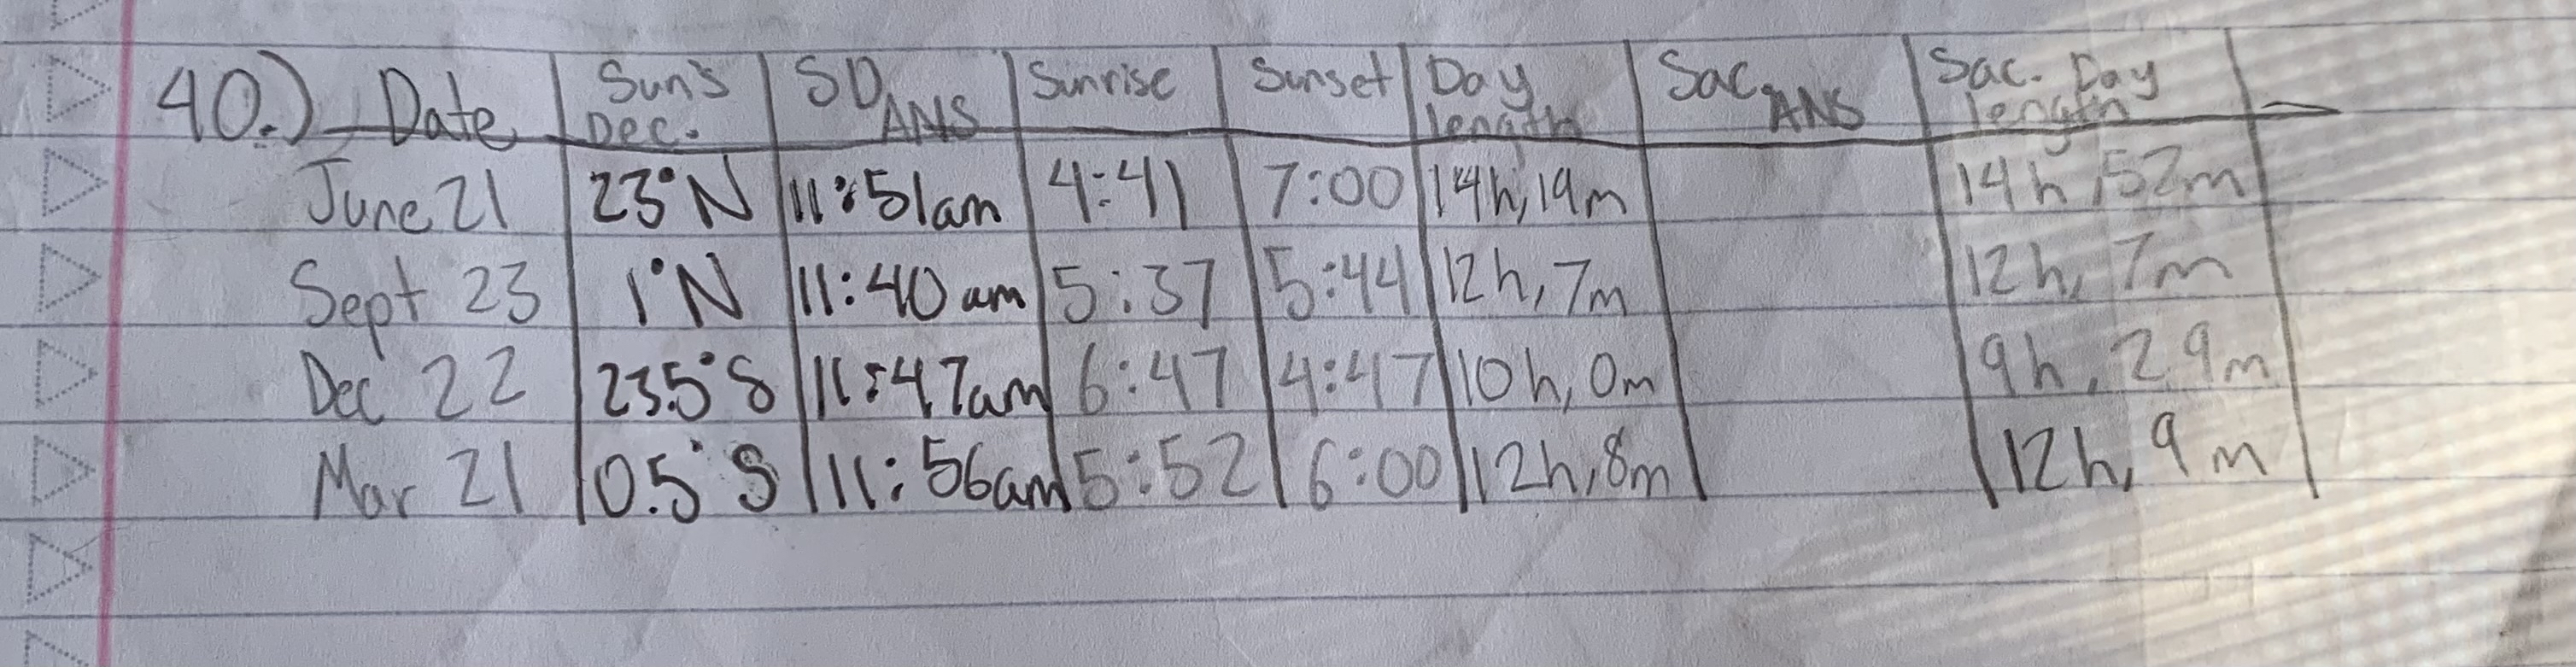 40.) Date Sun's Dec. SD ANS Sunrise Sunset Day length Sac ANS Sac. Day length
June 21 23°N 11:51am 4:41 7:00 14h, 19m 14h, 52m
Sept 23 1°N 11:40 am 5:37 5:44 12h, 7m 12h, 7m
Dec 22 23.5°S 11:47am 6:47 4:47 10h, 0m 9h, 29m
Mar 21 0.5°S 11:56am 5:52 6:00 12h, 8m 12h, 9m